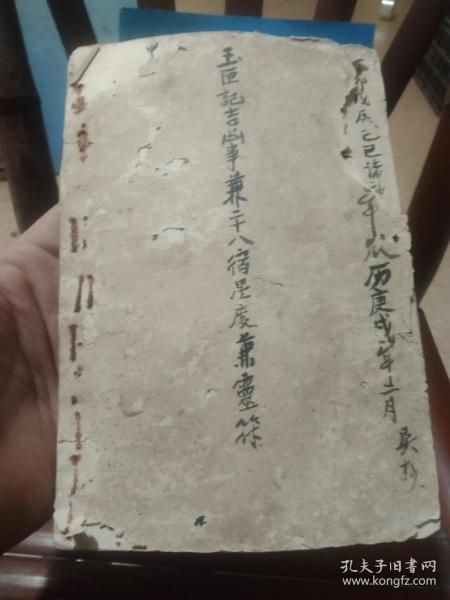 戊辰己巳諸神年农历庚戌年二月 吴抄
玉匣記吉凶事兼二十八宿星度兼靈符
孔夫子旧书网
www.kongfz.com